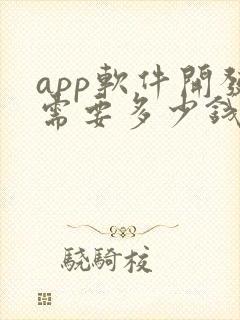 app軟件開發
需要多少錢
驍騎校